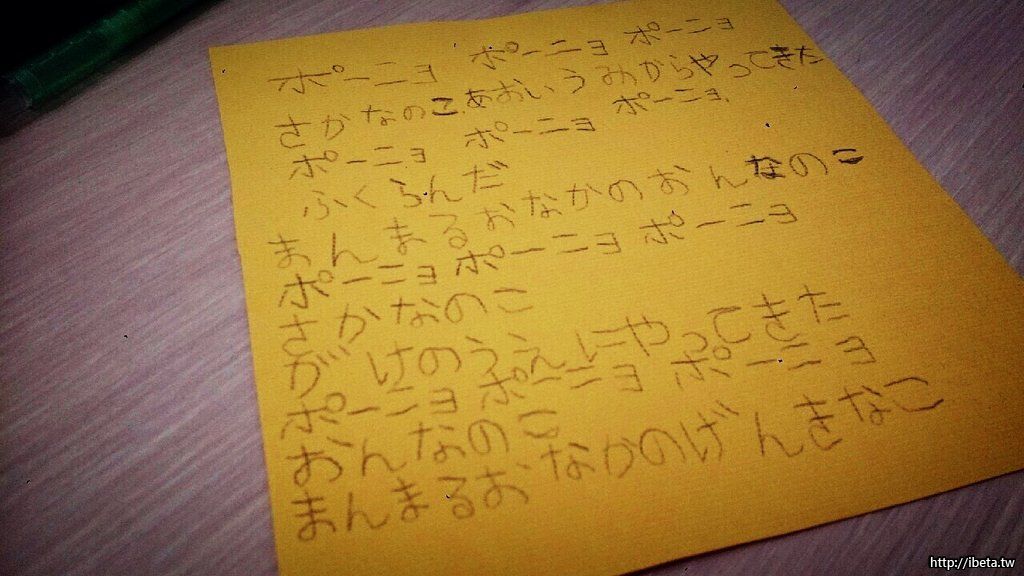 ポーニョ ポーニョ ポーニョ
さかなのこ. あおいうみからやってきた
ポーニョ ポーニョ ポーニョ.
ふくらんだ
まんまるおなかのおんなのこ
ポーニョ ポーニョ ポーニョ
さかなのこ
がけのうえにやってきた
ポーニョ ポーニョ ポーニョ
おんなのこ
まんまるおなかのげんきなこ
http://ibeta.tw